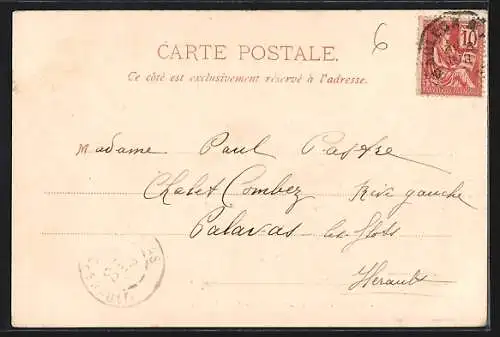 6
10
CARTE POSTALE.
Ce côté est exclusivement réservé à l'adresse.
Madame Paul
Chalet Combez Rive gauche
Palavas les flots
Hérault